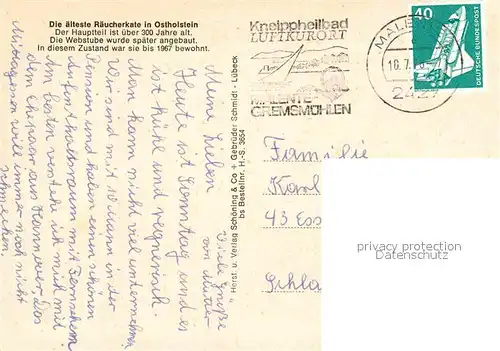 Die älteste Räucherkate in Ostholstein
Der Hauptteil ist über 300 Jahre alt.
Die Webstube wurde später angebaut.
In diesem Zustand war sie bis 1967 bewohnt.
Meine Lieben
Heute ist Sonntag und es
ist kühl und regnerisch.
Man kann nicht viel unternehmen
Wir sind mit 10 Mann in der
Pension und haben einen schönen
Aufenthaltsraum mit Fernsehern
Am besten verstehe ich mich mit
dem Ehepaar aus Hannover. Das
Mittagessen will immer noch nicht
schmecken.
Viele Grüße
von Mutter
Herst. u. Verlag Schöning & Co + Gebrüder Schmidt - Lübeck
bs Bestellnr. H.-S. 3654
Kneippheilbad
LUFTKURORT
MALENTE
GREMSMÜHLEN
MALENTE
16.7.
2427
40
DEUTSCHE BUNDESPOST
Familie
Karl
43 Ess
Schla
privacy protection
Datenschutz